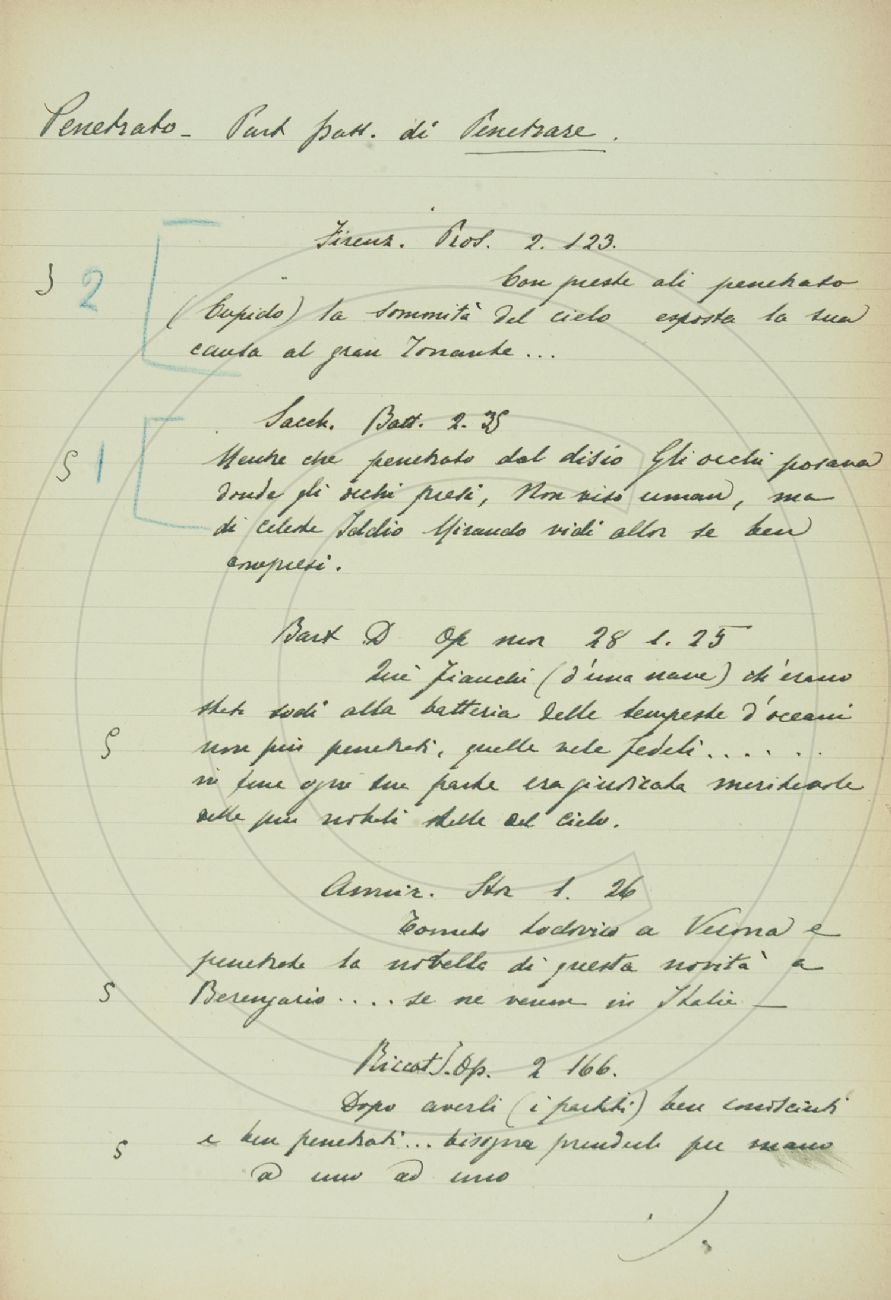 Penetrato - Part pass. di Penetrare.
Firenz. Pros. 2. 123.
Con preste ali penetrato
§ 2
(Cupido) la sommità del cielo esposta la sua
causa al gran Tonante...
Sacch. Batt. 2. 35
§ 1
Mentre che penetrato dal disio Gli occhi posava
donde gli occhi presi, Non viso uman, ma
di celeste Iddio Mirando vidi allor se ben
compresi.
Bart D Op mor 28 1. 25
Que' fianchi (d'una nave) ch'erano
stati sodi alla batteria delle tempeste d'oceani
§ non più penetrati, quelle vele fedeli......
in fine ogni sua parte era giudicata meritevole
delle più nobili stelle del cielo.
Ammir. Stor 1. 26
Tornato Lodovico a Verona e
penetrata la novella di questa novità a
§ Berengario.... se ne venne in Italia —
Riccat J. Op. 2 166.
Dopo averli (i partiti) ben conosciuti
§ e ben penetrati... bisogna prenderli per mano
ad uno ad uno